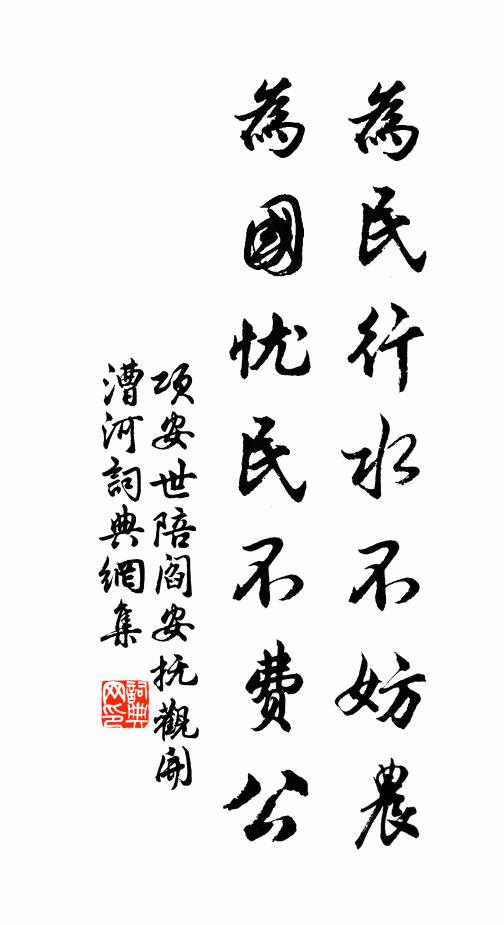 為民行水不妨農
為國忧民不费公
项安世陪阎安抚觀開
漕河詞典網集
詞典
网印